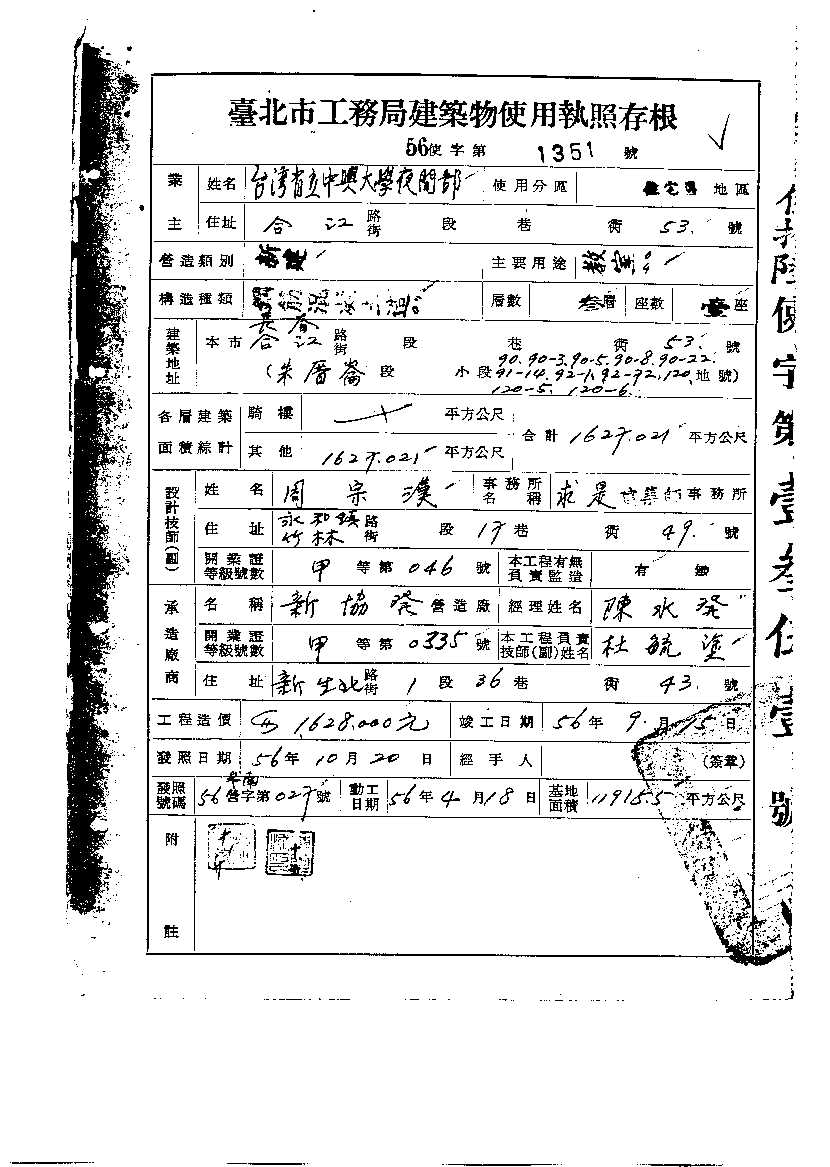 臺北市工務局建築物使用執照存根
56使字第 1351 號
業主 姓名 台湾省立中興大學夜間部 使用分區 住宅區 地區
住址 合江 路街 段 巷 衖 53. 號
營造類別 新建 主要用途 教室
構造種類 層數 叁層 座數 壹座
建築地址 本市 長春 合江 路街 段 巷 衖 53. 號
(朱厝崙段 小段 90.90-3.90-5.90-8.90-22. 91-14.92-1.92-72.120. 120-5. 120-6. 地號)
各層建築面積綜計 騎樓 平方公尺 合計 平方公尺
其他 平方公尺
設計技師(副) 姓名 周宗漢 事務所名稱 求是建築師事務所
住址 永和鎮 竹林 路街 段 17巷 衖 49. 號
開業證等級號數 甲等第046號 本工程有無負責監造 有 無
承造廠商 名稱 新協發營造廠 經理姓名 陳水發
開業證等級號數 甲等第0335號 本工程負責技師(副)姓名 杜毓塗
住址 新生北 路街 1段 36巷 衖 43. 號
工程造價 1628.000元 竣工日期 56年9.月15日
發照日期 56年10月20日 經手人 (簽章)
發照號碼 56 營字第027號 動工日期 56年4月18日 基地面積 11915.5 平方公尺
附註
使字第壹叁伍壹號